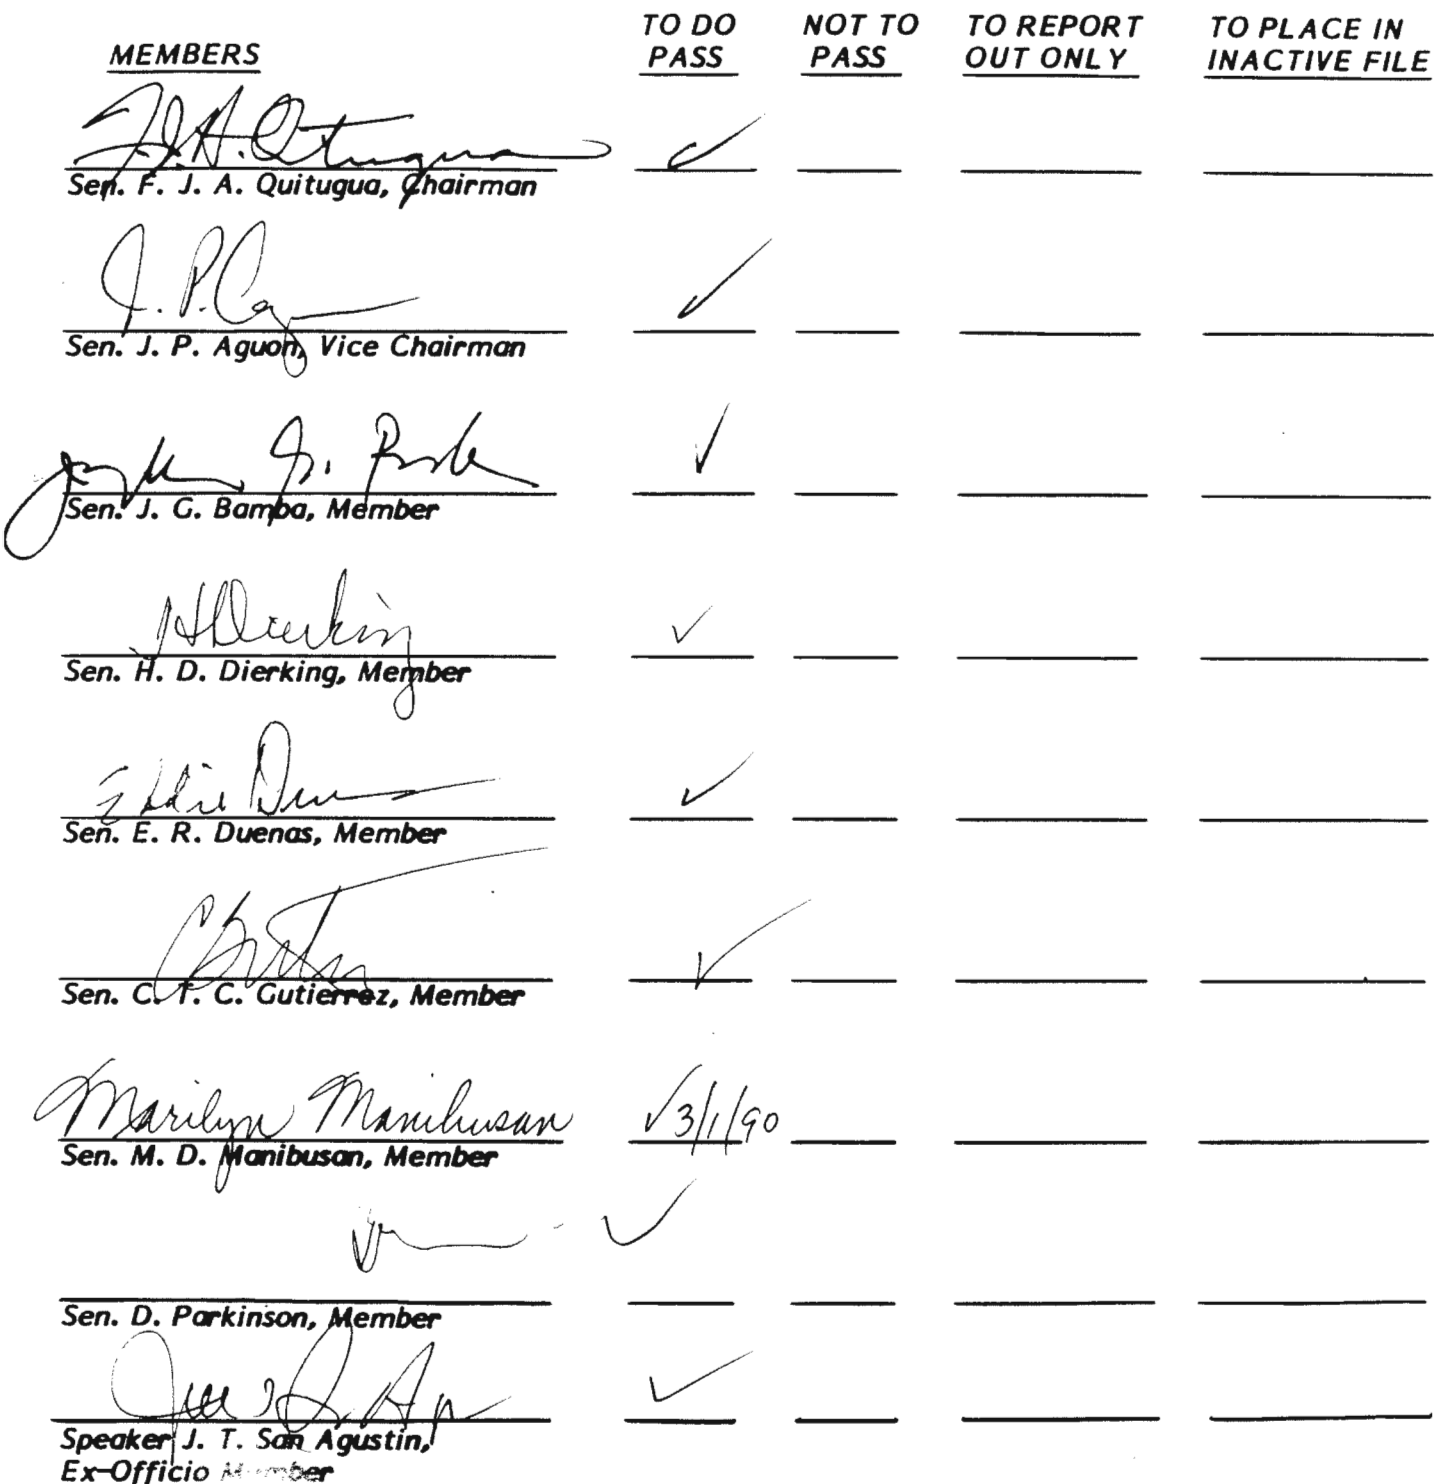 MEMBERS TO DO PASS NOT TO PASS TO REPORT OUT ONLY TO PLACE IN INACTIVE FILE
Sen. F. J. A. Quitugua, Chairman
J. P.
Sen. J. P. Aguon, Vice Chairman
Sen. J. G. Bamba, Member
HDierking
Sen. H. D. Dierking, Member
Eddie Duenas
Sen. E. R. Duenas, Member
Sen. C. T. C. Gutierrez, Member
Marilyn Manibusan ✓3/1/90
Sen. M. D. Manibusan, Member
Sen. D. Parkinson, Member
Speaker J. T. San Agustin,
Ex-Officio Member